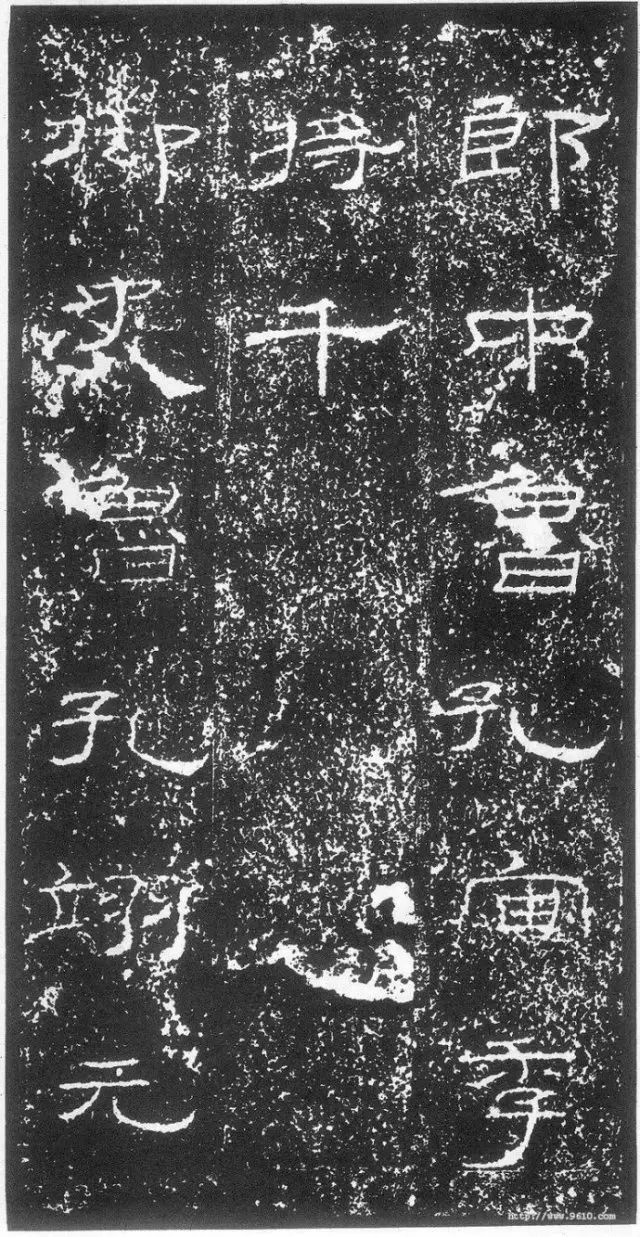 郎中魯孔宙季
將千
御史魯孔翊元
http://www.9610.com